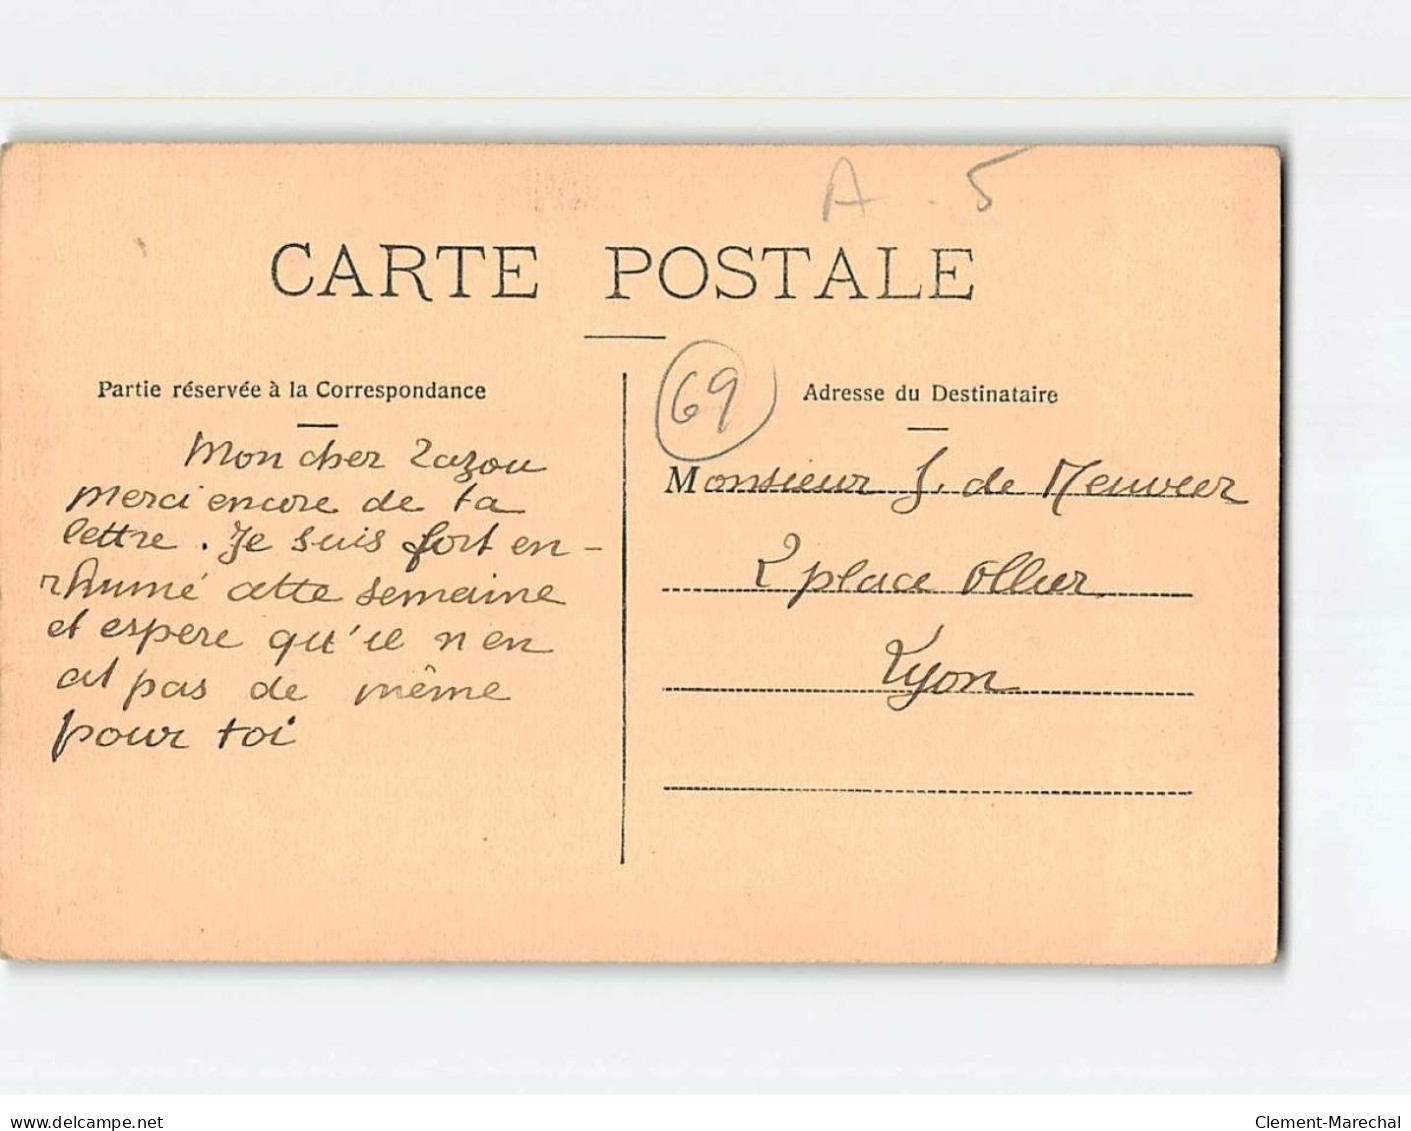 A . 5
CARTE POSTALE
69
Partie réservée à la Correspondance
Mon cher Zazou
merci encore de ta
lettre . Je suis fort en-
rhumé cette semaine
et espère qu'il n'en
est pas de même
pour toi
Adresse du Destinataire
Monsieur J. de
2 place Ollier
Lyon
www.delcampe.net
Clement-Marechal